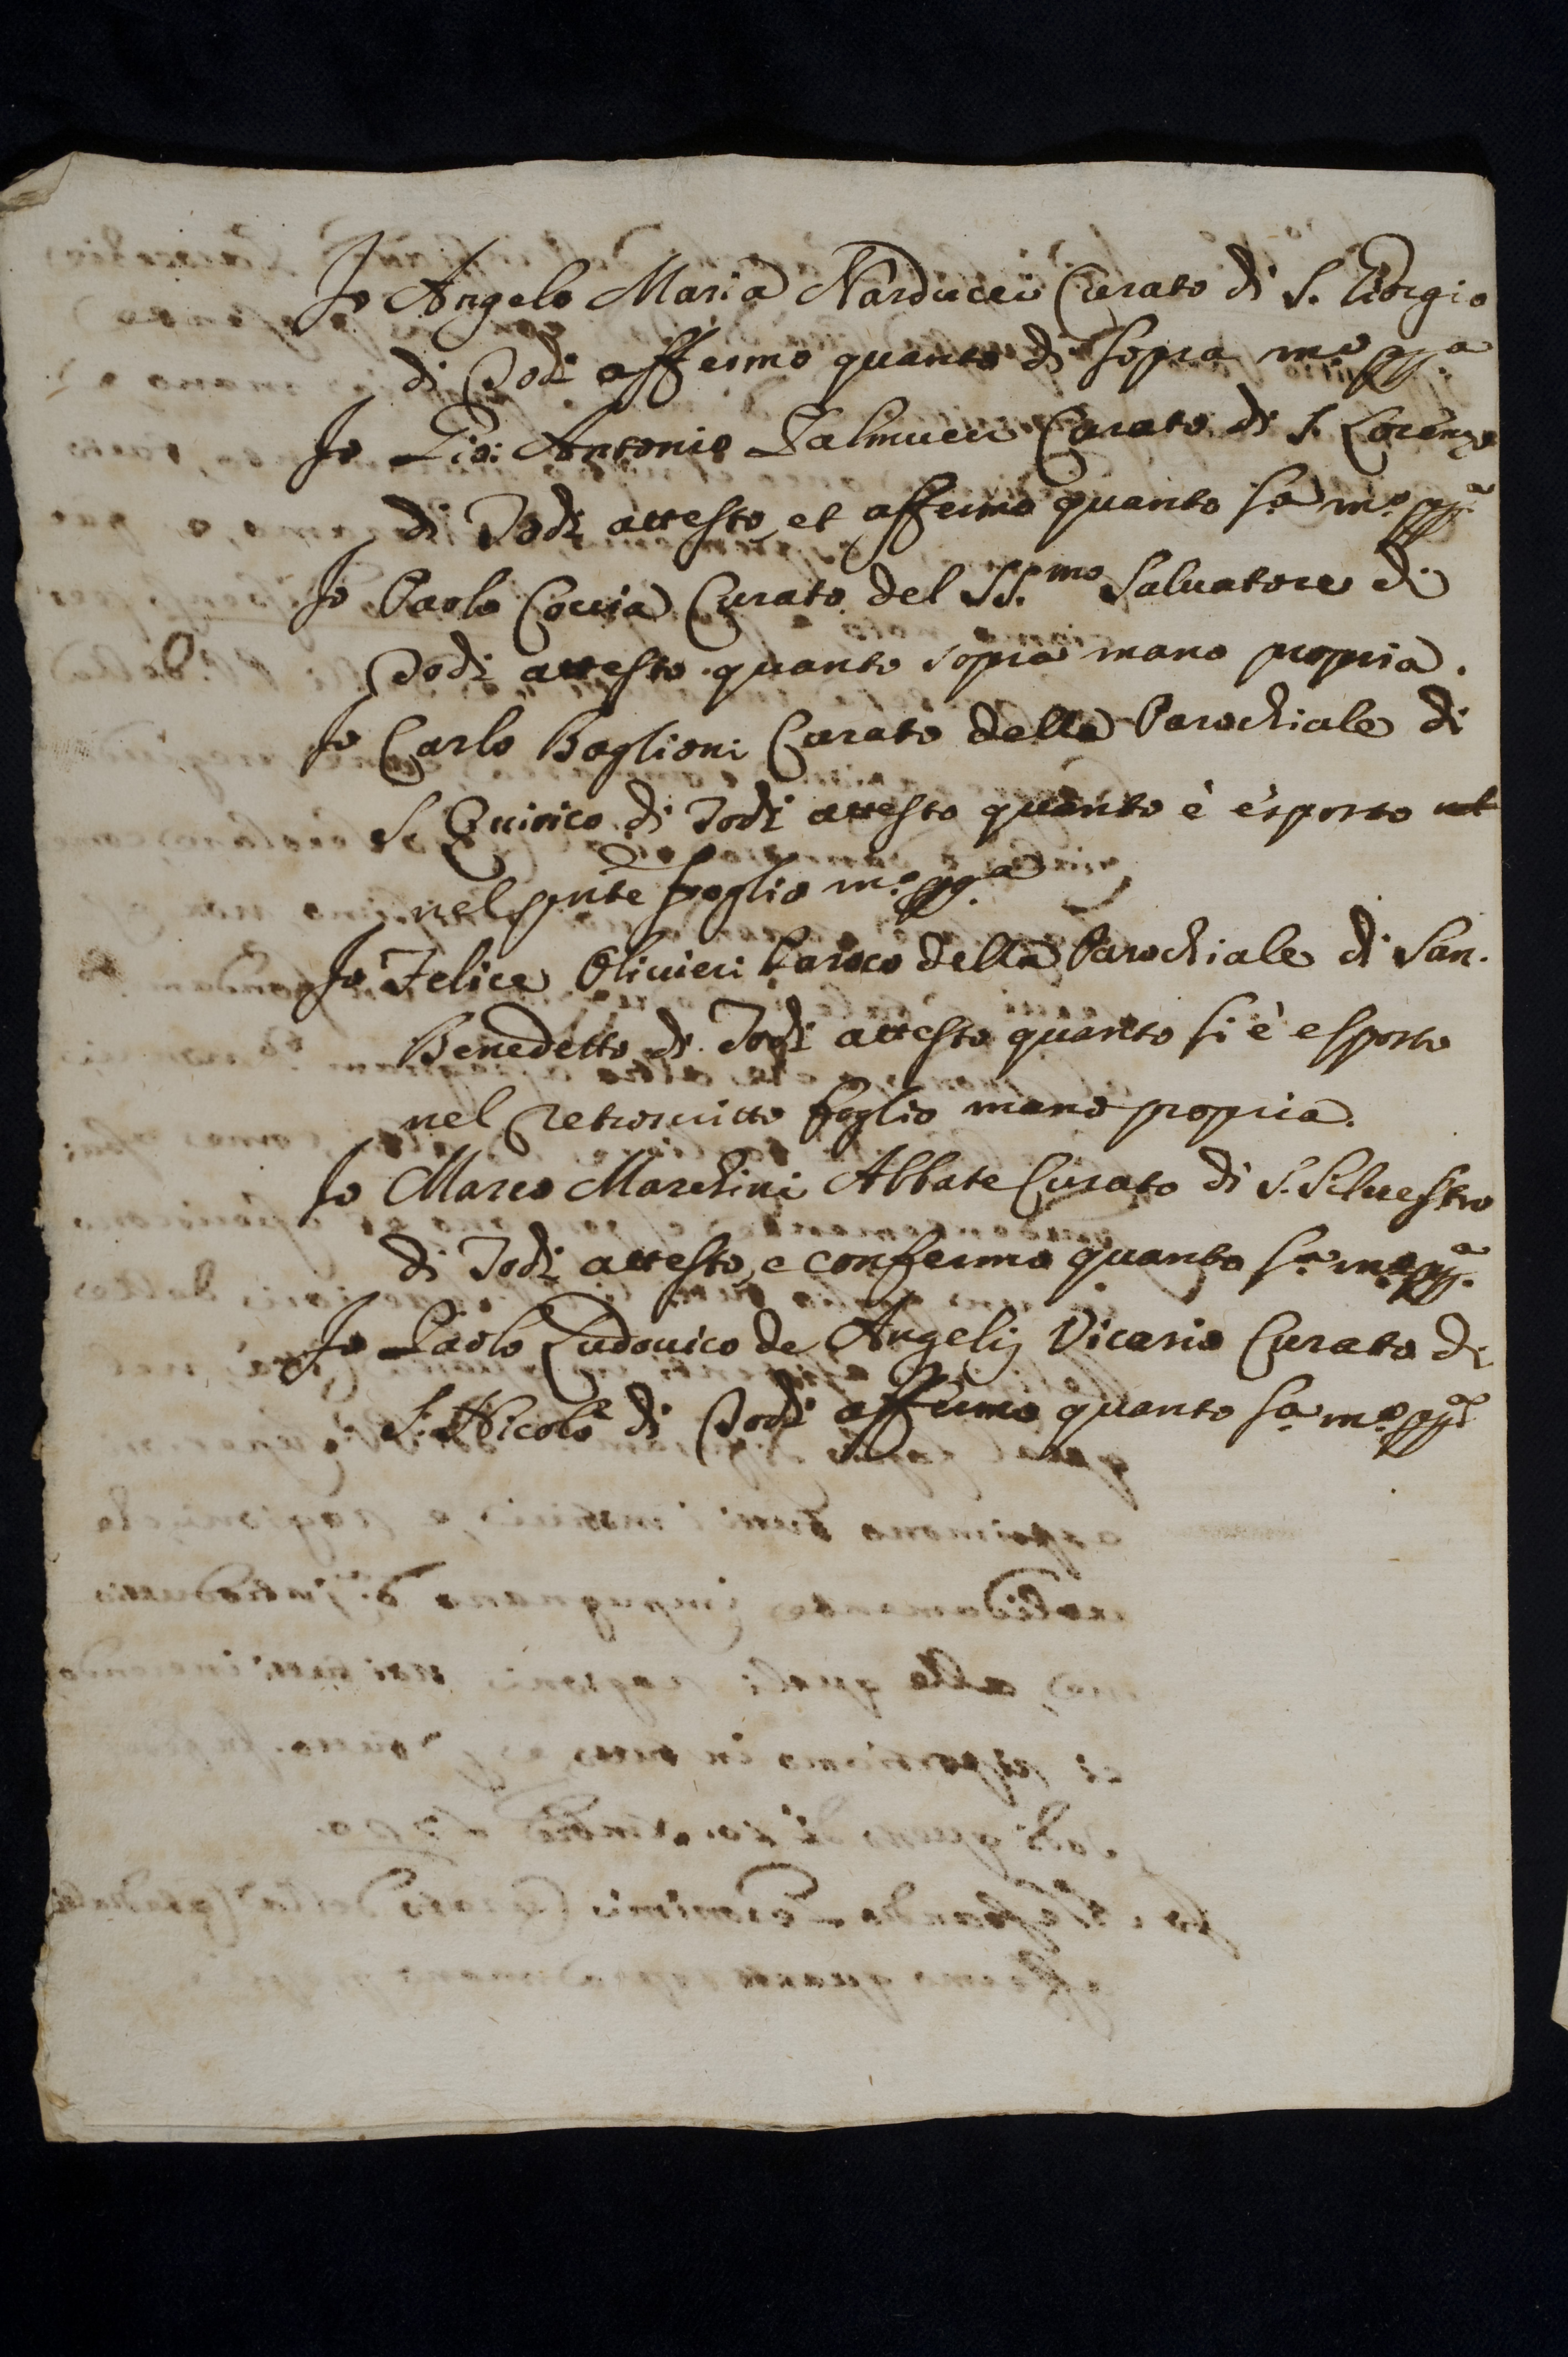 Io Angelo Maria Narducci Curato di S. Giorgio
di Todi affermo quanto di sopra m.o pp.a
Io Gio: Antonio Palmucci Curato di S. Lorenzo
di Todi attesto, et affermo quanto s.a m.o pp.a
Io Paolo Coccia Curato del SS.mo Saluatore di
Todi attesto quanto sopra mano propria.
Io Carlo Baglioni Curato della Parochiale di
S. Quirico di Todi attesto quanto è esposto
nel pnte foglio m.o pp.a
Io Felice Oliuieri Paroco della Parochiale di San.
Benedetto di Todi attesto quanto si è esposto
nel retroscritto foglio mano propria.
Io Marco Marchini Abbate Curato di S. Siluestro
di Todi attesto, e confermo quanto s.a m.o pp.a
Io Paolo Ludouico de Angelis Vicario Curato di
S. Nicolò di Todi affermo quanto s.a m.o pp.a